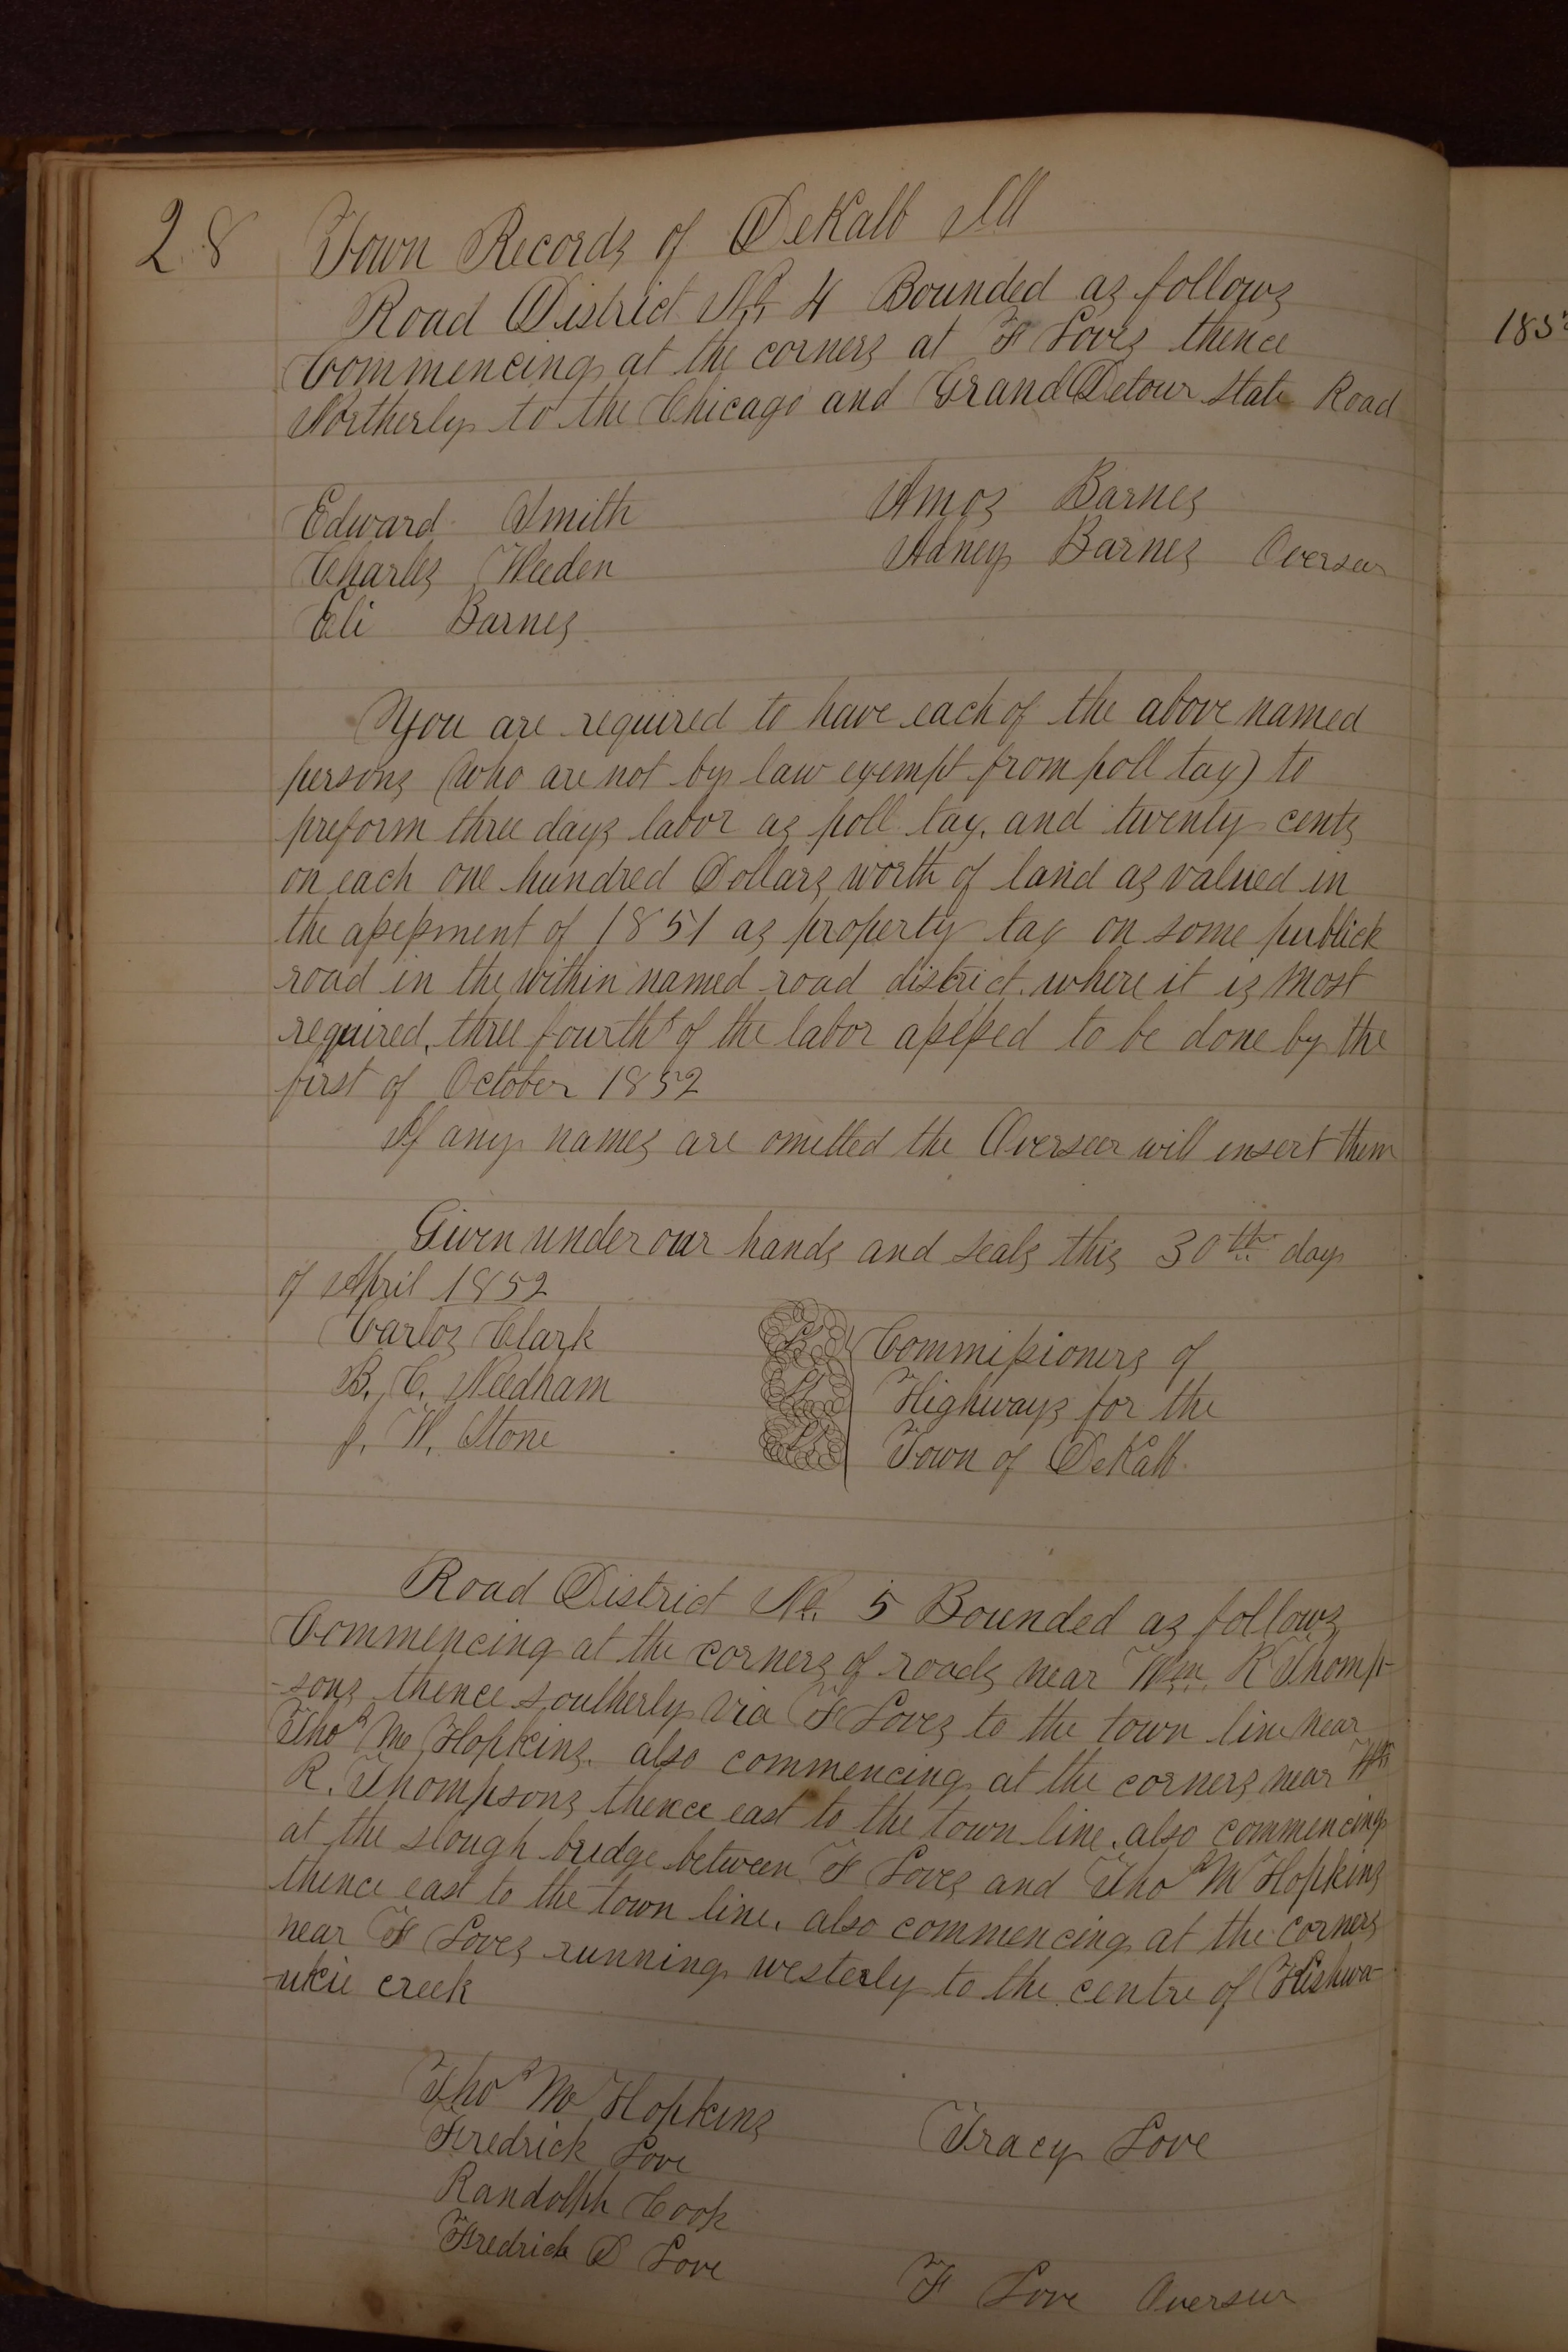 28 Town Records of DeKalb Ill
Road District No. 4 Bounded as follows
Commencing at the corners at F Loves thence
Northerly to the Chicago and Grand Detour State Road
Edward Smith Amos Barnes
Charles Weeden Adney Barnes Overseer
Eli Barnes
You are required to have each of the above named
persons (who are not by law exempt from poll tax) to
preform three days labor as poll tax, and twenty cents
on each one hundred Dollars worth of land as valued in
the assessment of 1851 as property tax on some publick
road in the within named road district. where it is most
required, three fourths of the labor assessed to be done by the
first of October 1852
If any names are omitted the Overseer will insert them
Given under our hands and seals this 30th day
of April 1852
Carlos Clark LS Commissioners of
B. C. Needham LS Highways for the
J. W. Stone LS Town of DeKalb
Road District No. 5 Bounded as follows
Commencing at the corners of roads near Wm. R Thomp-
-sons thence southerly via F Loves to the town line near
Thos Mc Hopkins. also commencing at the corners near Wm
R. Thompsons thence east to the town line. also commencing
at the slough bridge between F Loves and Thos M Hopkins
thence east to the town line. also commencing at the corners
near F Loves running westerly to the centre of Kishwa-
-ukie creek
Thos Mc Hopkins Tracy Love
Fredrick Love
Randolph Cook
Fredrick D Love
F Love Overseer